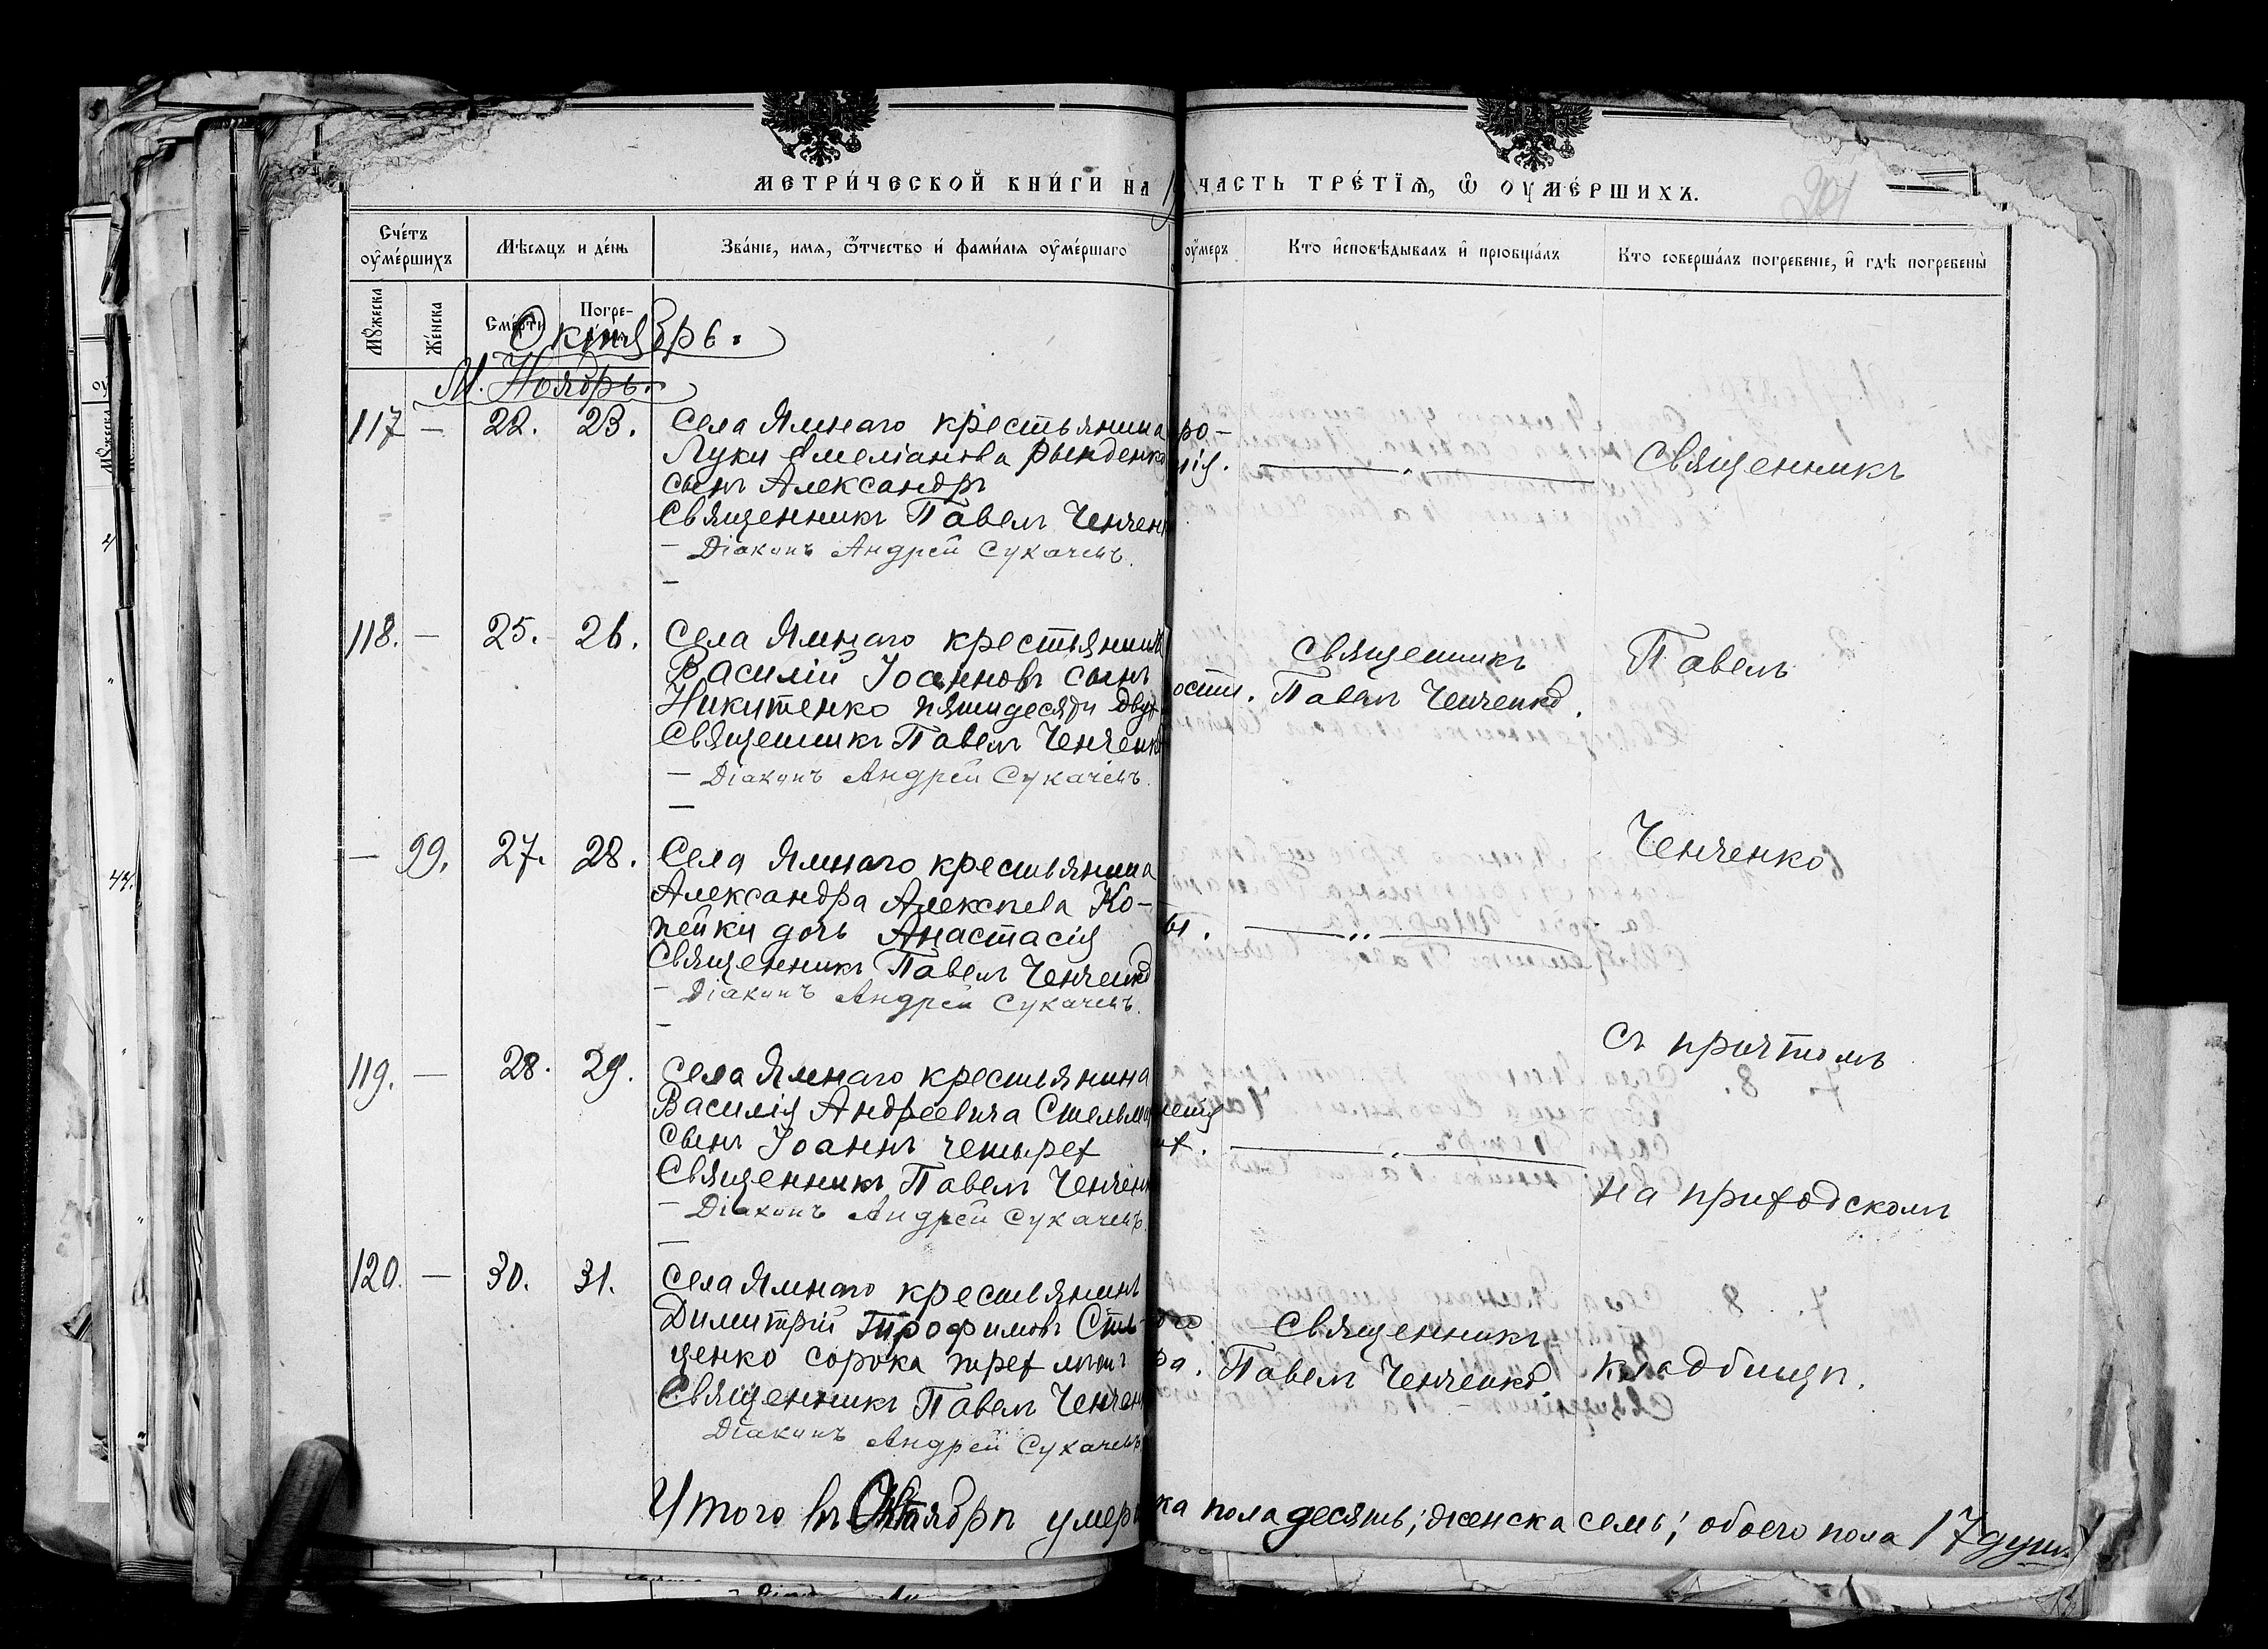 МЕТРИ́ЧЕСКОЙ КНИ́ГИ НА
ЧАСТЬ ТРЕ́ТЇѦ, Ѿ ОУМЕ́РШИХЪ.
Сче́тъ оумершихъ
Мѣсяцъ и де́нь
Зва́нїе, имя, ѿтчество и фами́лїя оуме́ршаго
оумеръ
Кто исповѣдывалъ и прїобща́лъ
Кто соверша́лъ погребенїе, и гдѣ погребены̀
Мужеска
Же́нска
Сме́рти
Погре-
Октябрь.
М. Ноябрь.
117 — 22. 23. Села Ямнаго крестьянина
Луки Емеліанова Рынденко
сынъ Александръ
Священникъ Павелъ Ченчен
— Діаконъ Андрей Сукачевъ.
ро-
Священникъ
118. — 25. 26. Села Ямнаго крестьянинъ
Василій Іоанновъ сынъ
Никитенко пятидесяти двух
Священникъ Павелъ Ченченко
— Діаконъ Андрей Сукачевъ.
ости.
Священникъ
Павелъ Ченченко.
Павелъ
— 99. 27. 28. Села Ямнаго крестьянина
Александра Алексѣева Ко-
пейки дочь Анастасія
Священникъ Павелъ Ченченко
— Діаконъ Андрей Сукачевъ.
Ченченко
119. — 28. 29. Села Ямнаго крестьянина
Василія Андреевича
сынъ Іоаннъ четырех
Священникъ Павелъ Ченченк
— Діаконъ Андрей Сукачевъ.
съ причтомъ
на приходскомъ
120. — 30. 31. Села Ямнаго крестьянинъ
Димитрій Трофимовъ
ценко сорока трех лѣтъ
Священникъ Павелъ Ченчен
Діаконъ Андрей Сукачевъ
ра.
Священникъ
Павелъ Ченченко.
кладбищѣ.
Итого въ Октябрѣ умер
ка пола десять; женска семь; обоего пола 17 душъ